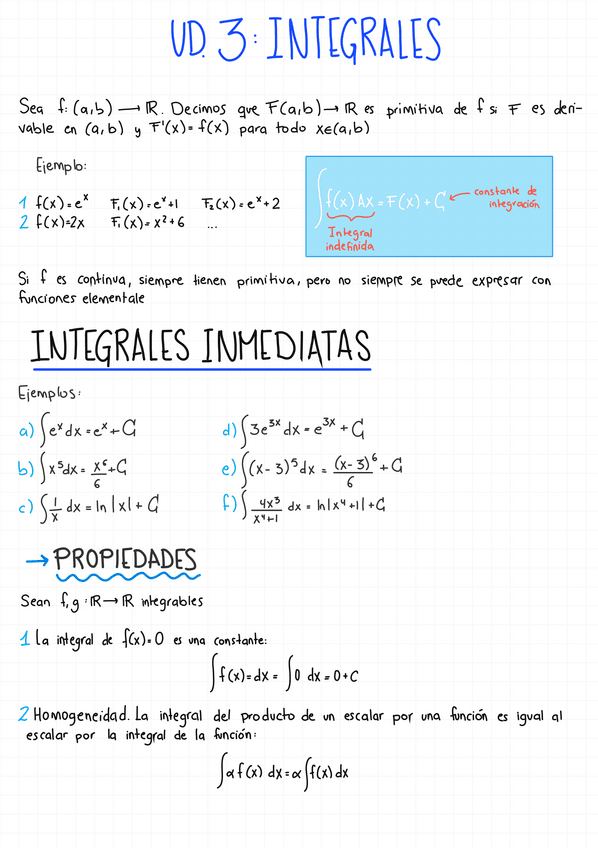 UD. 3: INTEGRALES
Sea f: (a,b) → ℝ. Decimos que F(a,b) → ℝ es primitiva de f si F es deri-
vable en (a,b) y F'(x)= f(x) para todo x∈(a,b)
Ejemplo:
1 f(x)=e^x F₁(x)=e^x+1 F₂(x)=e^x+2
2 f(x)=2x F₁(x)= x²+6 ...
∫f(x)Ax = F(x) + C ← constante de
integración
Integral
indefinida
Si f es continua, siempre tienen primitiva, pero no siempre se puede expresar con
funciones elementale
INTEGRALES INMEDIATAS
Ejemplos:
a) ∫e^x dx = e^x + C d) ∫3e^3x dx = e^3x + C
b) ∫x⁵dx = x⁶/6 + C e) ∫(x-3)⁵dx = (x-3)⁶/6 + C
c) ∫1/x dx = ln|x| + C f) ∫4x³/x⁴+1 dx = ln|x⁴+1|+C
→ PROPIEDADES
Sean f,g: ℝ → ℝ integrables
1 La integral de f(x)=0 es una constante:
∫f(x)=dx = ∫0 dx = 0+C
2 Homogeneidad. La integral del producto de un escalar por una función es igual al
escalar por la integral de la función:
∫αf(x) dx = α∫f(x)dx